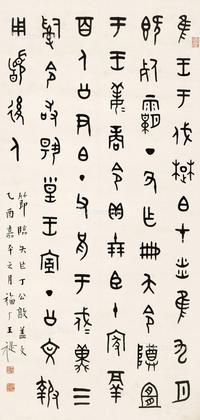 隹王于伐楚白才炎隹九月
既死霸丁丑乍冊夨令尊宜
于王姜商令貝十朋臣十家鬲
百人公尹白丁父兄于戍冀三
令敢揚皇王宣丁公文報
用後人
節臨夨乍丁公敦蓋文
乙酉嘉平之月福厂王禔